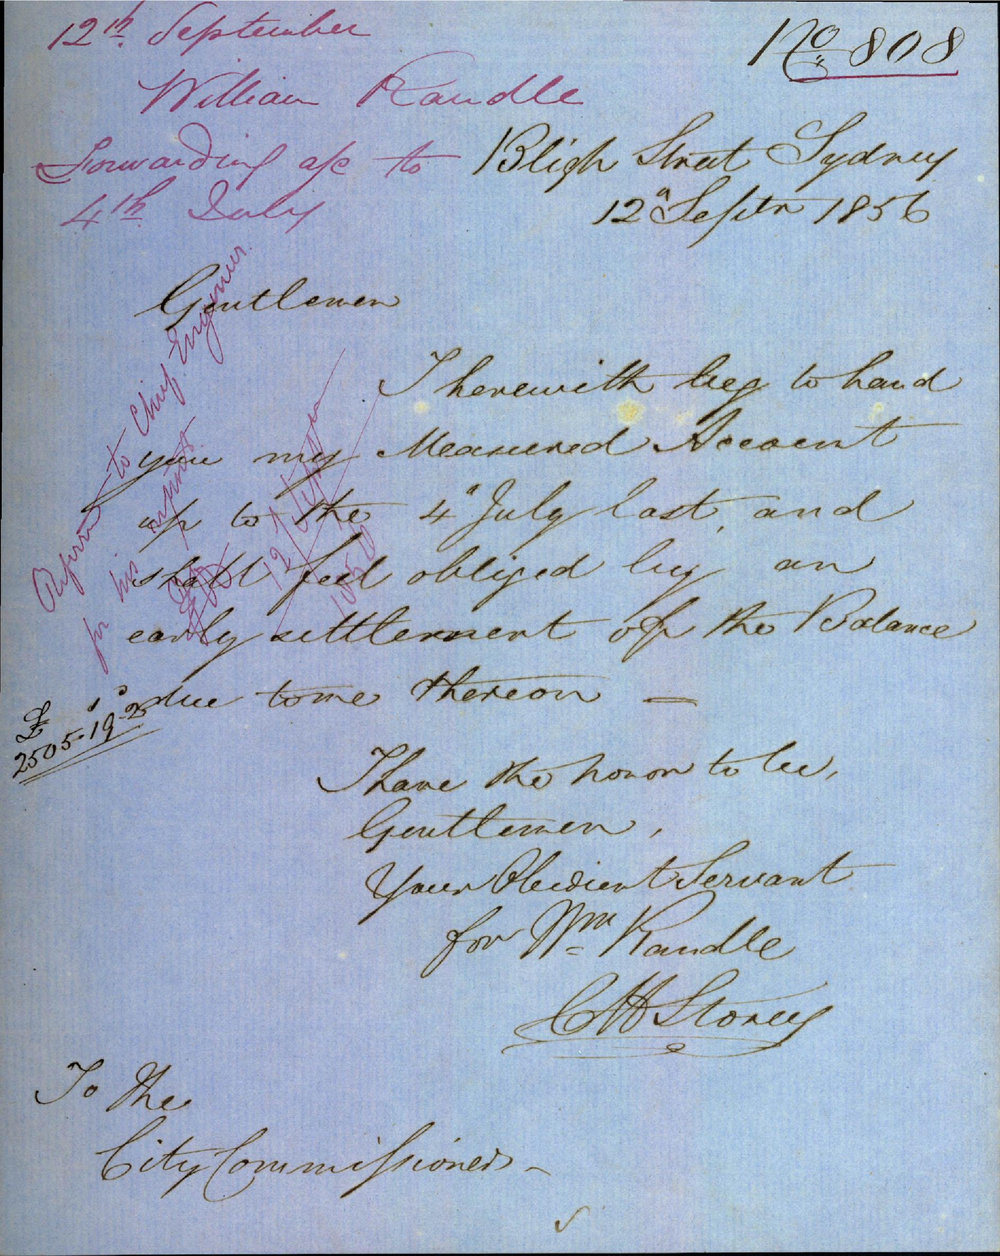 12th September
William Randle
Forwarding a/c to
4th July
No 808
Bligh Street Sydney
12th Septr 1856
Gentlemen
I herewith beg to hand
you my Measured Account
up to the 4th July last, and
shall feel obliged by an
early settlement of the Balance
due to me thereon —
£ s d
2505.19.2
I have the honor to be,
Gentlemen,
Your Obedient Servant
for Wm Randle
C H Storey
To the
City Commissioners –
Referred to Chief Engineer
for his report
12 September
1856